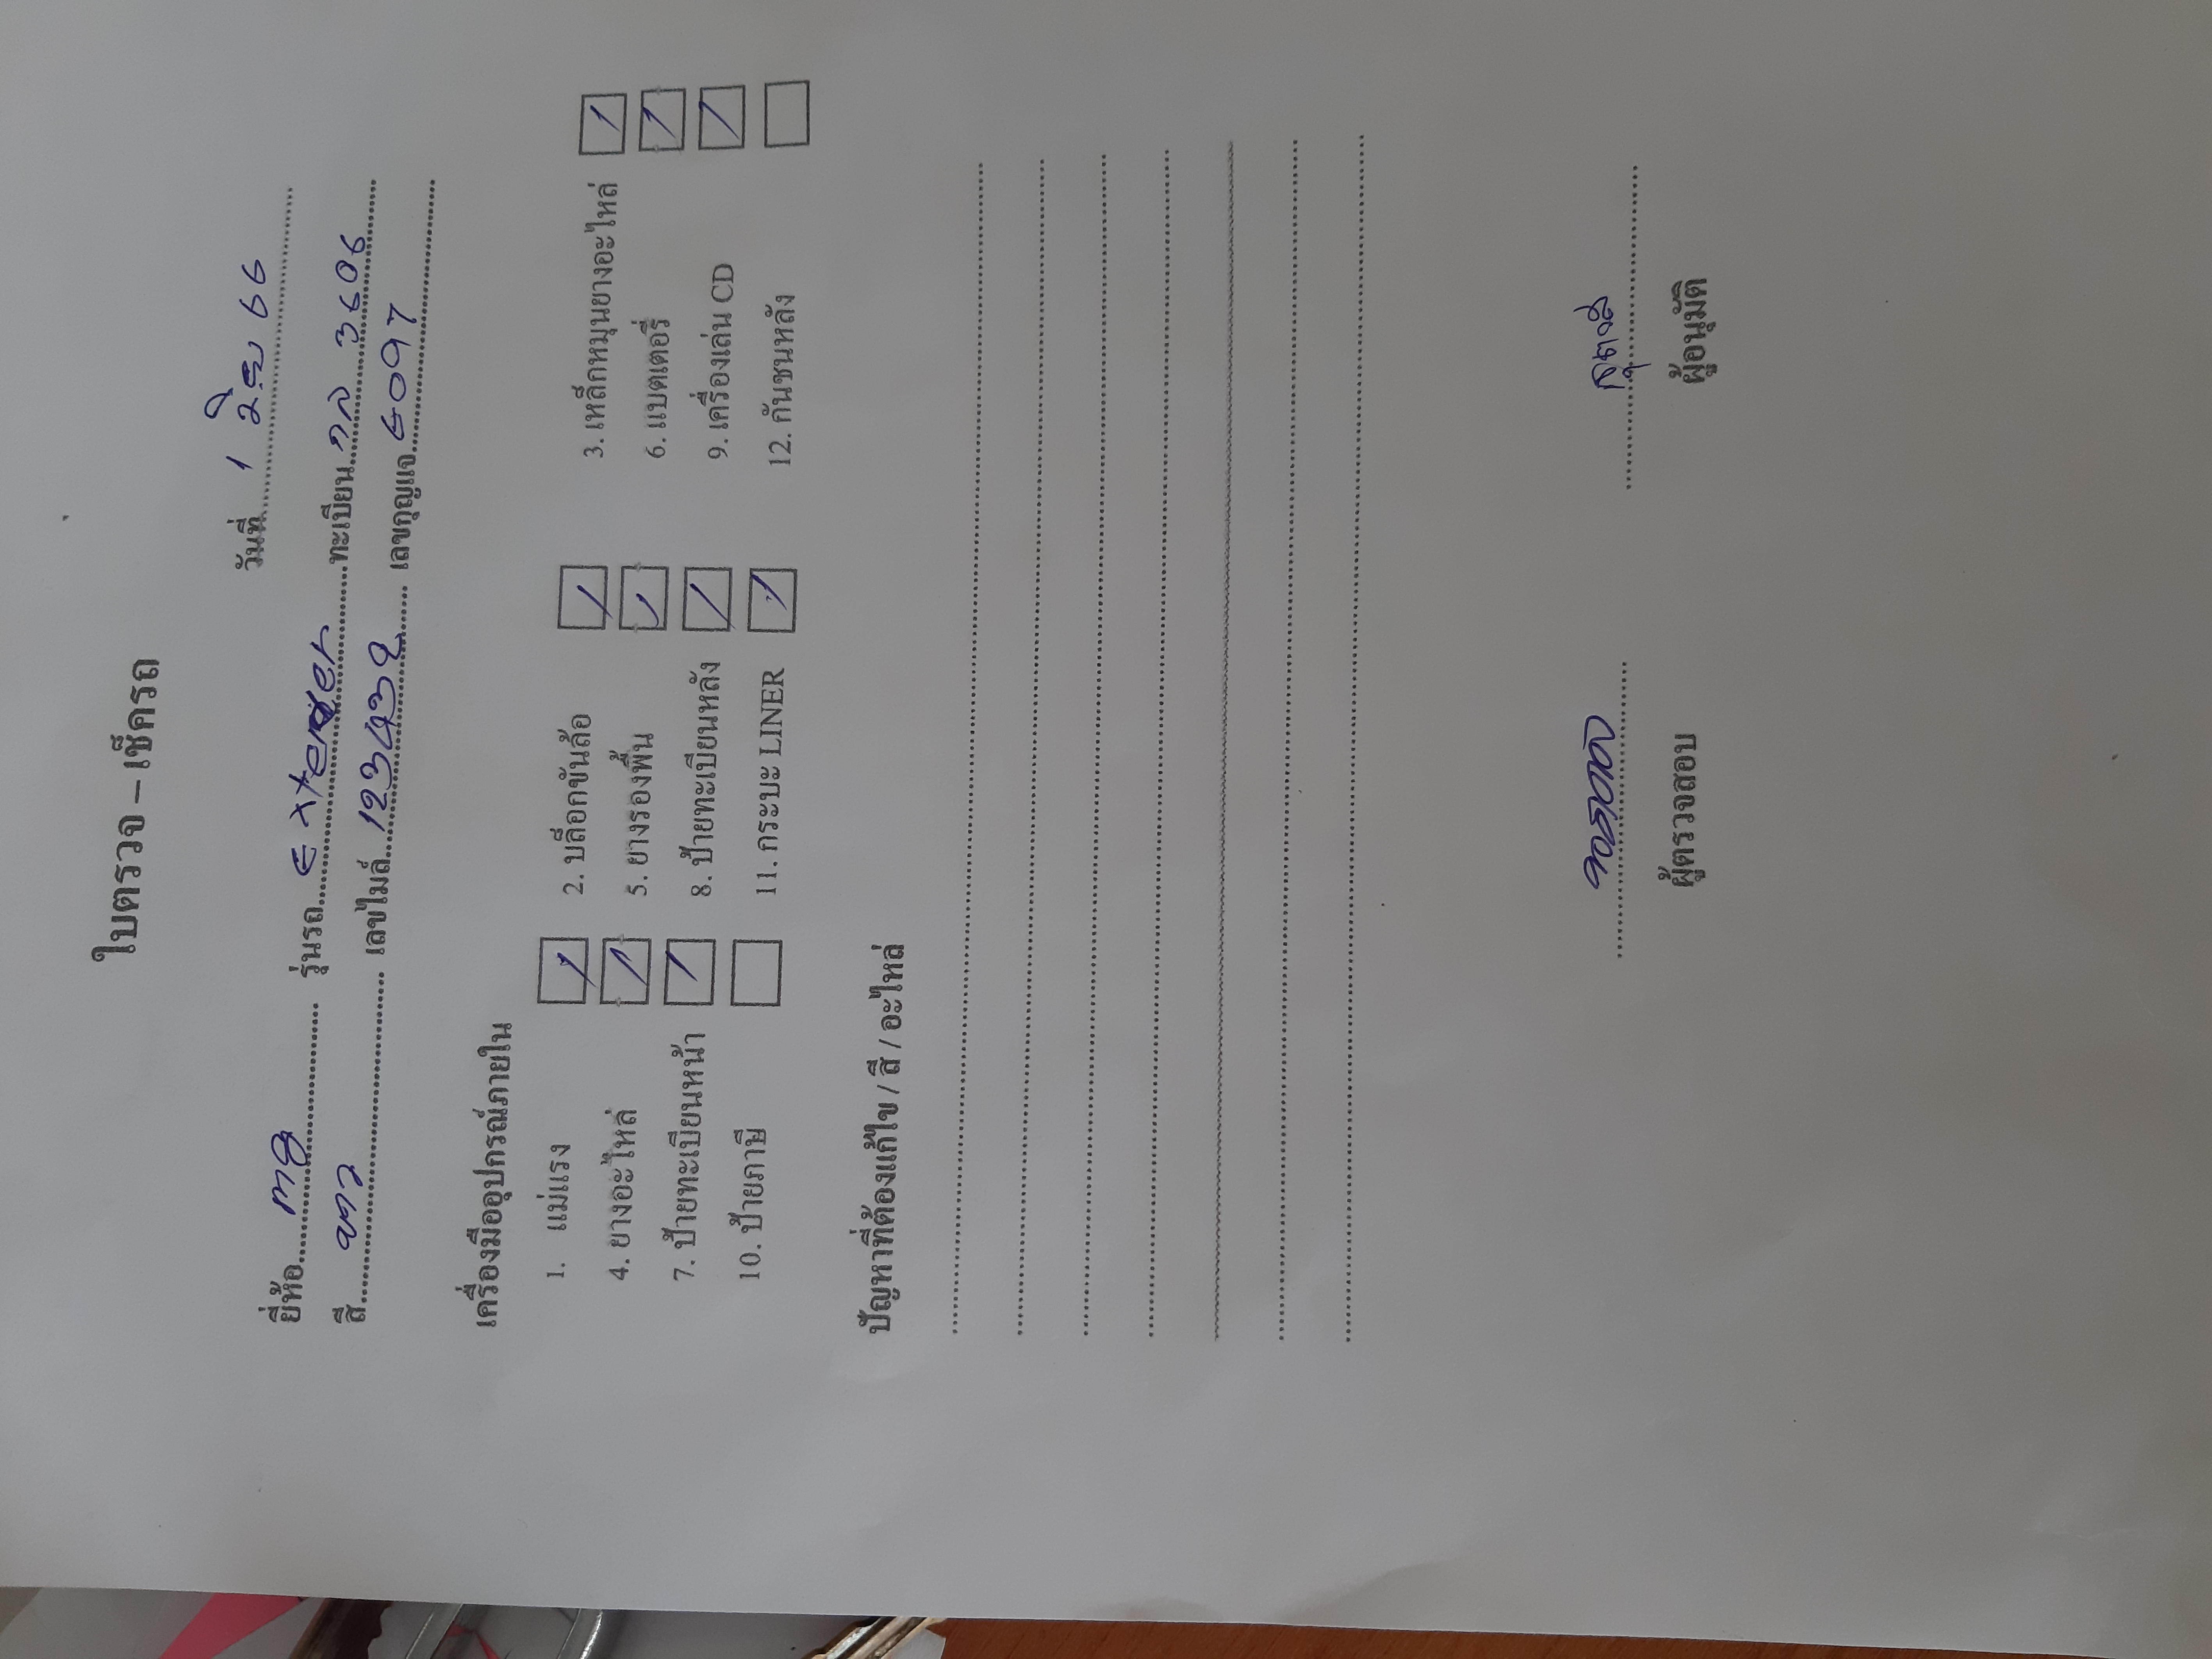 ใบตรวจ – เช็ครถ
วันที่ 1 มิย 66
ยี่ห้อ mg รุ่นรถ Extender ทะเบียน 3606
สี ขาว เลขไมล์ เลขกุญแจ 6097
เครื่องมืออุปกรณ์ภายใน
1. แม่แรง 2. บล็อกขันล้อ 3. เหล็กหมุนยางอะไหล่
4. ยางอะไหล่ 5. ยางรองพื้น 6. แบตเตอรี่
7. ป้ายทะเบียนหน้า 8. ป้ายทะเบียนหลัง 9. เครื่องเล่น CD
10. ป้ายภาษี 11. กระบะ LINER 12. กันชนหลัง
ปัญหาที่ต้องแก้ไข / สี / อะไหล่
ผู้ตรวจสอบ ผู้อนุมัติ